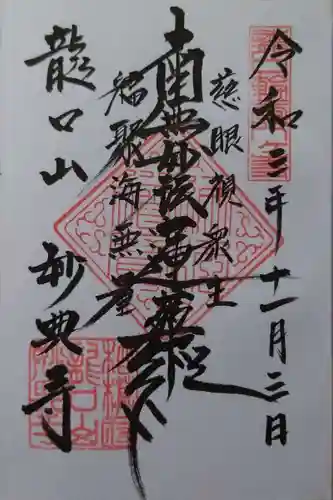 令和三年十一月三日
慈眼視衆生
南無妙法蓮華経
福聚海無量
龍口山 妙典寺